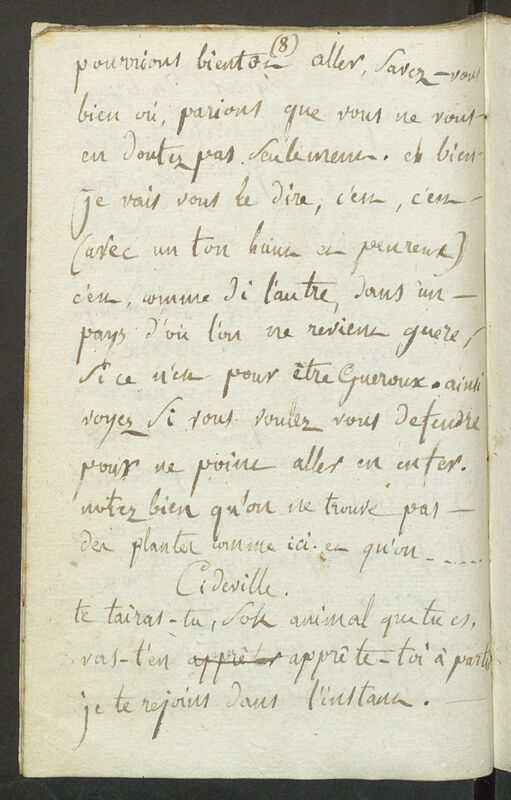 (8)
pourrions bientot aller, Savez-vous
bien où, parions que vous ne vous
en doutez pas Seulement. eh bien
je vais vous le dire, c'est, c'est
(avec un ton haut et peureux)
c'est, comme di l'autre, dans un
pays d'où l'on ne revient guere,
Si ce n'est pour être Gueroux. ainsi
voyez Si vous voulez vous defendre
pour ne point aller en enfer.
notez bien qu'on ne trouve pas
des plantes comme ici. et qu'on .....
Cideville.
te tairas-tu, Sot animal que tu es,
vas-t'en apprête apprête-toi à partir
je te rejoins dans l'instant.